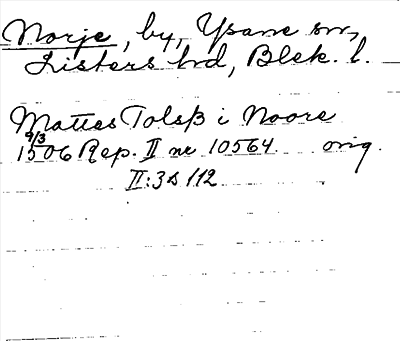 Norje, by, Ysane sn,
Listers hd, Blek. l.
Mattes Tolsß i Noore
9/3
1506 Rep. II nr 10564. orig.
II:3 s 112